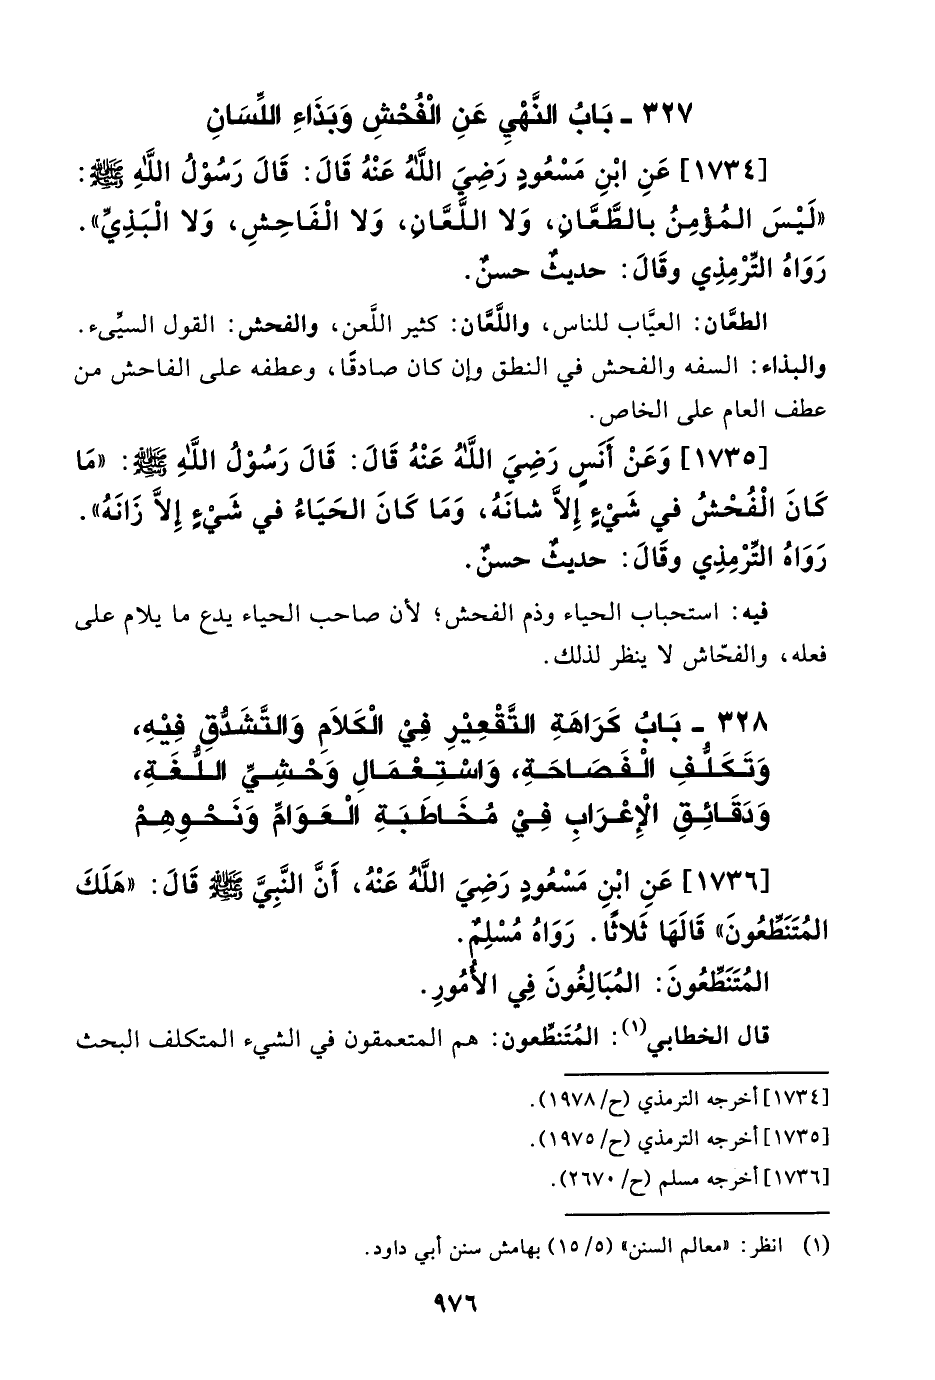 ٣٢٧ ـ بَابُ النَّهْيِ عَنِ الْفُحْشِ وَبَذَاءِ اللِّسَانِ
[١٧٣٤] عَنِ ابْنِ مَسْعُودٍ رَضِيَ اللَّهُ عَنْهُ قَالَ: قَالَ رَسُوْلُ اللَّهِ ﷺ:
«لَيْسَ المُؤْمِنُ بالطَّعَّانِ، وَلا اللَّعَّانِ، وَلا الْفَاحِشِ، وَلا الْبَذِيِّ».
رَوَاهُ التِّرْمِذِي وقَالَ: حديثٌ حسنٌ.
الطعَّان: العيَّاب للناس، واللَّعَّان: كثير اللَّعن، والفحش: القول السيِّىء.
والبذاء: السفه والفحش في النطق وإن كان صادقًا، وعطفه على الفاحش من
عطف العام على الخاص.
[١٧٣٥] وَعَنْ أَنَسٍ رَضِيَ اللَّهُ عَنْهُ قَالَ: قَالَ رَسُوْلُ اللَّهِ ﷺ: «مَا
كَانَ الْفُحْشُ في شَيْءٍ إِلاَّ شانَهُ، وَمَا كَانَ الحَيَاءُ في شَيْءٍ إِلاَّ زَانَهُ».
رَوَاهُ التِّرْمِذِي وقَالَ: حديثٌ حسنٌ.
فيه: استحباب الحياء وذم الفحش؛ لأن صاحب الحياء يدع ما يلام على
فعله، والفحّاش لا ينظر لذلك.
٣٢٨ ـ بَابُ كَرَاهَةِ التَّقْعِيْرِ فِيْ الْكَلَامِ وَالتَّشَدُّقِ فِيْهِ،
وَتَكَلُّفِ الْفَصَاحَةِ، وَاسْتِعْمَالِ وَحْشِيِّ اللُّغَةِ،
وَدَقَائِقِ الْإِعْرَابِ فِيْ مُخَاطَبَةِ الْعَوَامِّ وَنَحْوِهِمْ
[١٧٣٦] عَنِ ابْنِ مَسْعُودٍ رَضِيَ اللَّهُ عَنْهُ، أَنَّ النَّبِيَّ ﷺ قَالَ: «هَلَكَ
المُتَنَطِّعُونَ» قَالَهَا ثَلاثًا. رَوَاهُ مُسْلِمٌ.
المُتَنَطِّعُونَ: المُبَالِغُونَ فِي الأُمُورِ.
قال الخطابي(١): المُتَنطِّعون: هم المتعمقون في الشيء المتكلف البحث
[١٧٣٤] أخرجه الترمذي (ح/ ١٩٧٨).
[١٧٣٥] أخرجه الترمذي (ح/ ١٩٧٥).
[١٧٣٦] أخرجه مسلم (ح/ ٢٦٧٠).
(١) انظر: «معالم السنن» (٥/ ١٥) بهامش سنن أبي داود.
٩٧٦